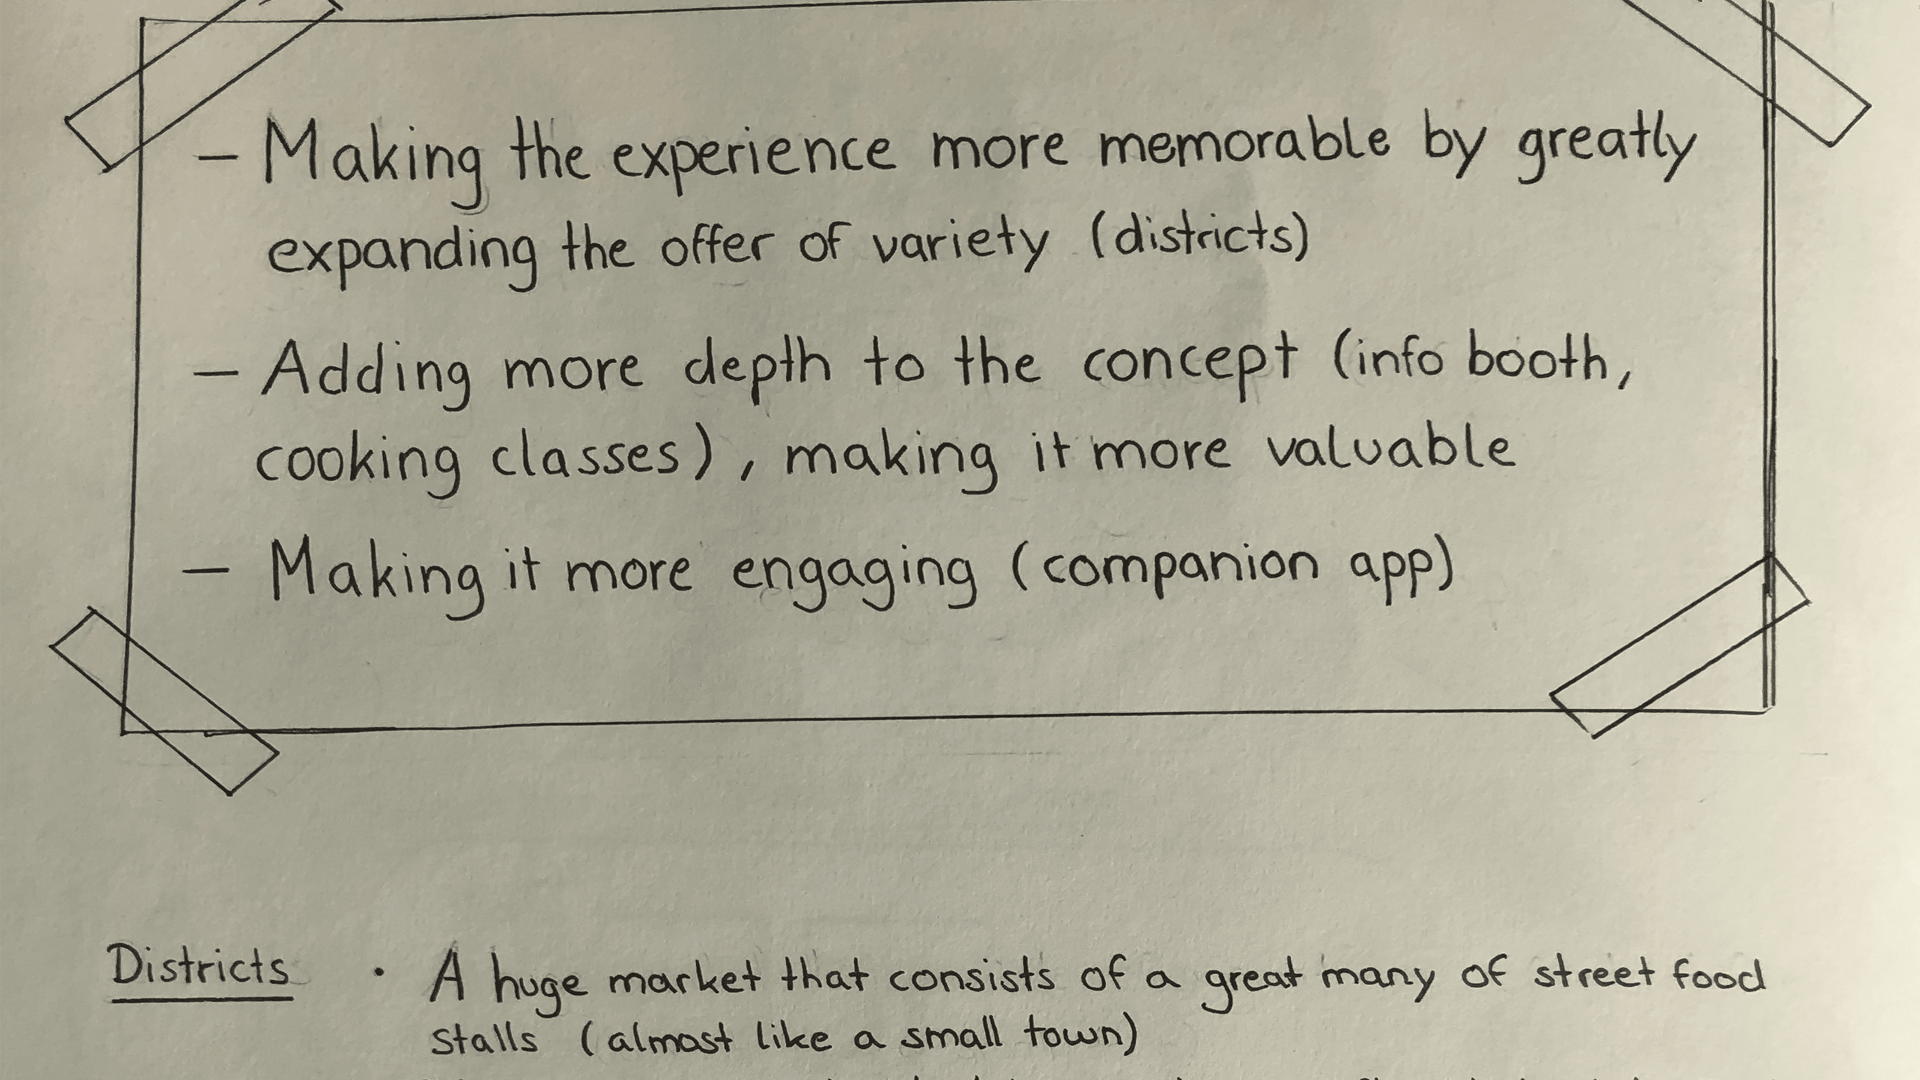 – Making the experience more memorable by greatly
expanding the offer of variety (districts)
– Adding more depth to the concept (info booth,
cooking classes), making it more valuable
– Making it more engaging (companion app)
Districts • A huge market that consists of a great many of street food
stalls (almost like a small town)